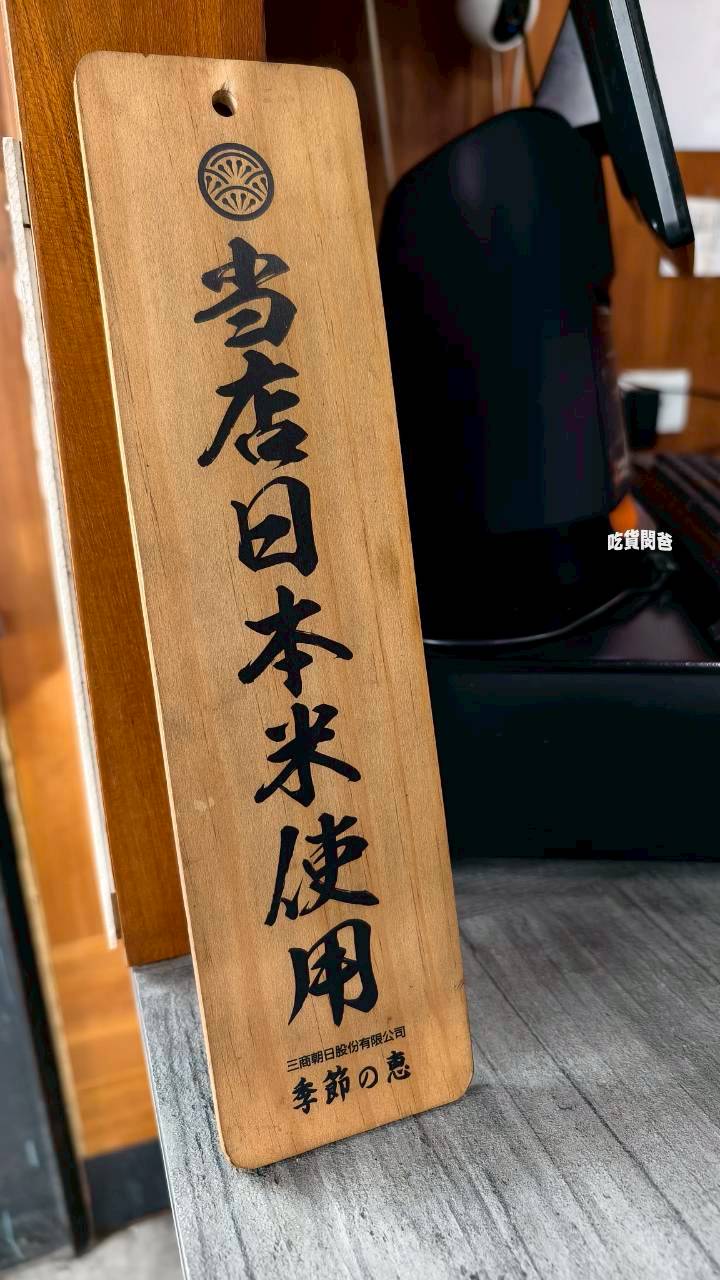 当店日本米使用
三商朝日股份有限公司
季節の恵
吃貨閔爸